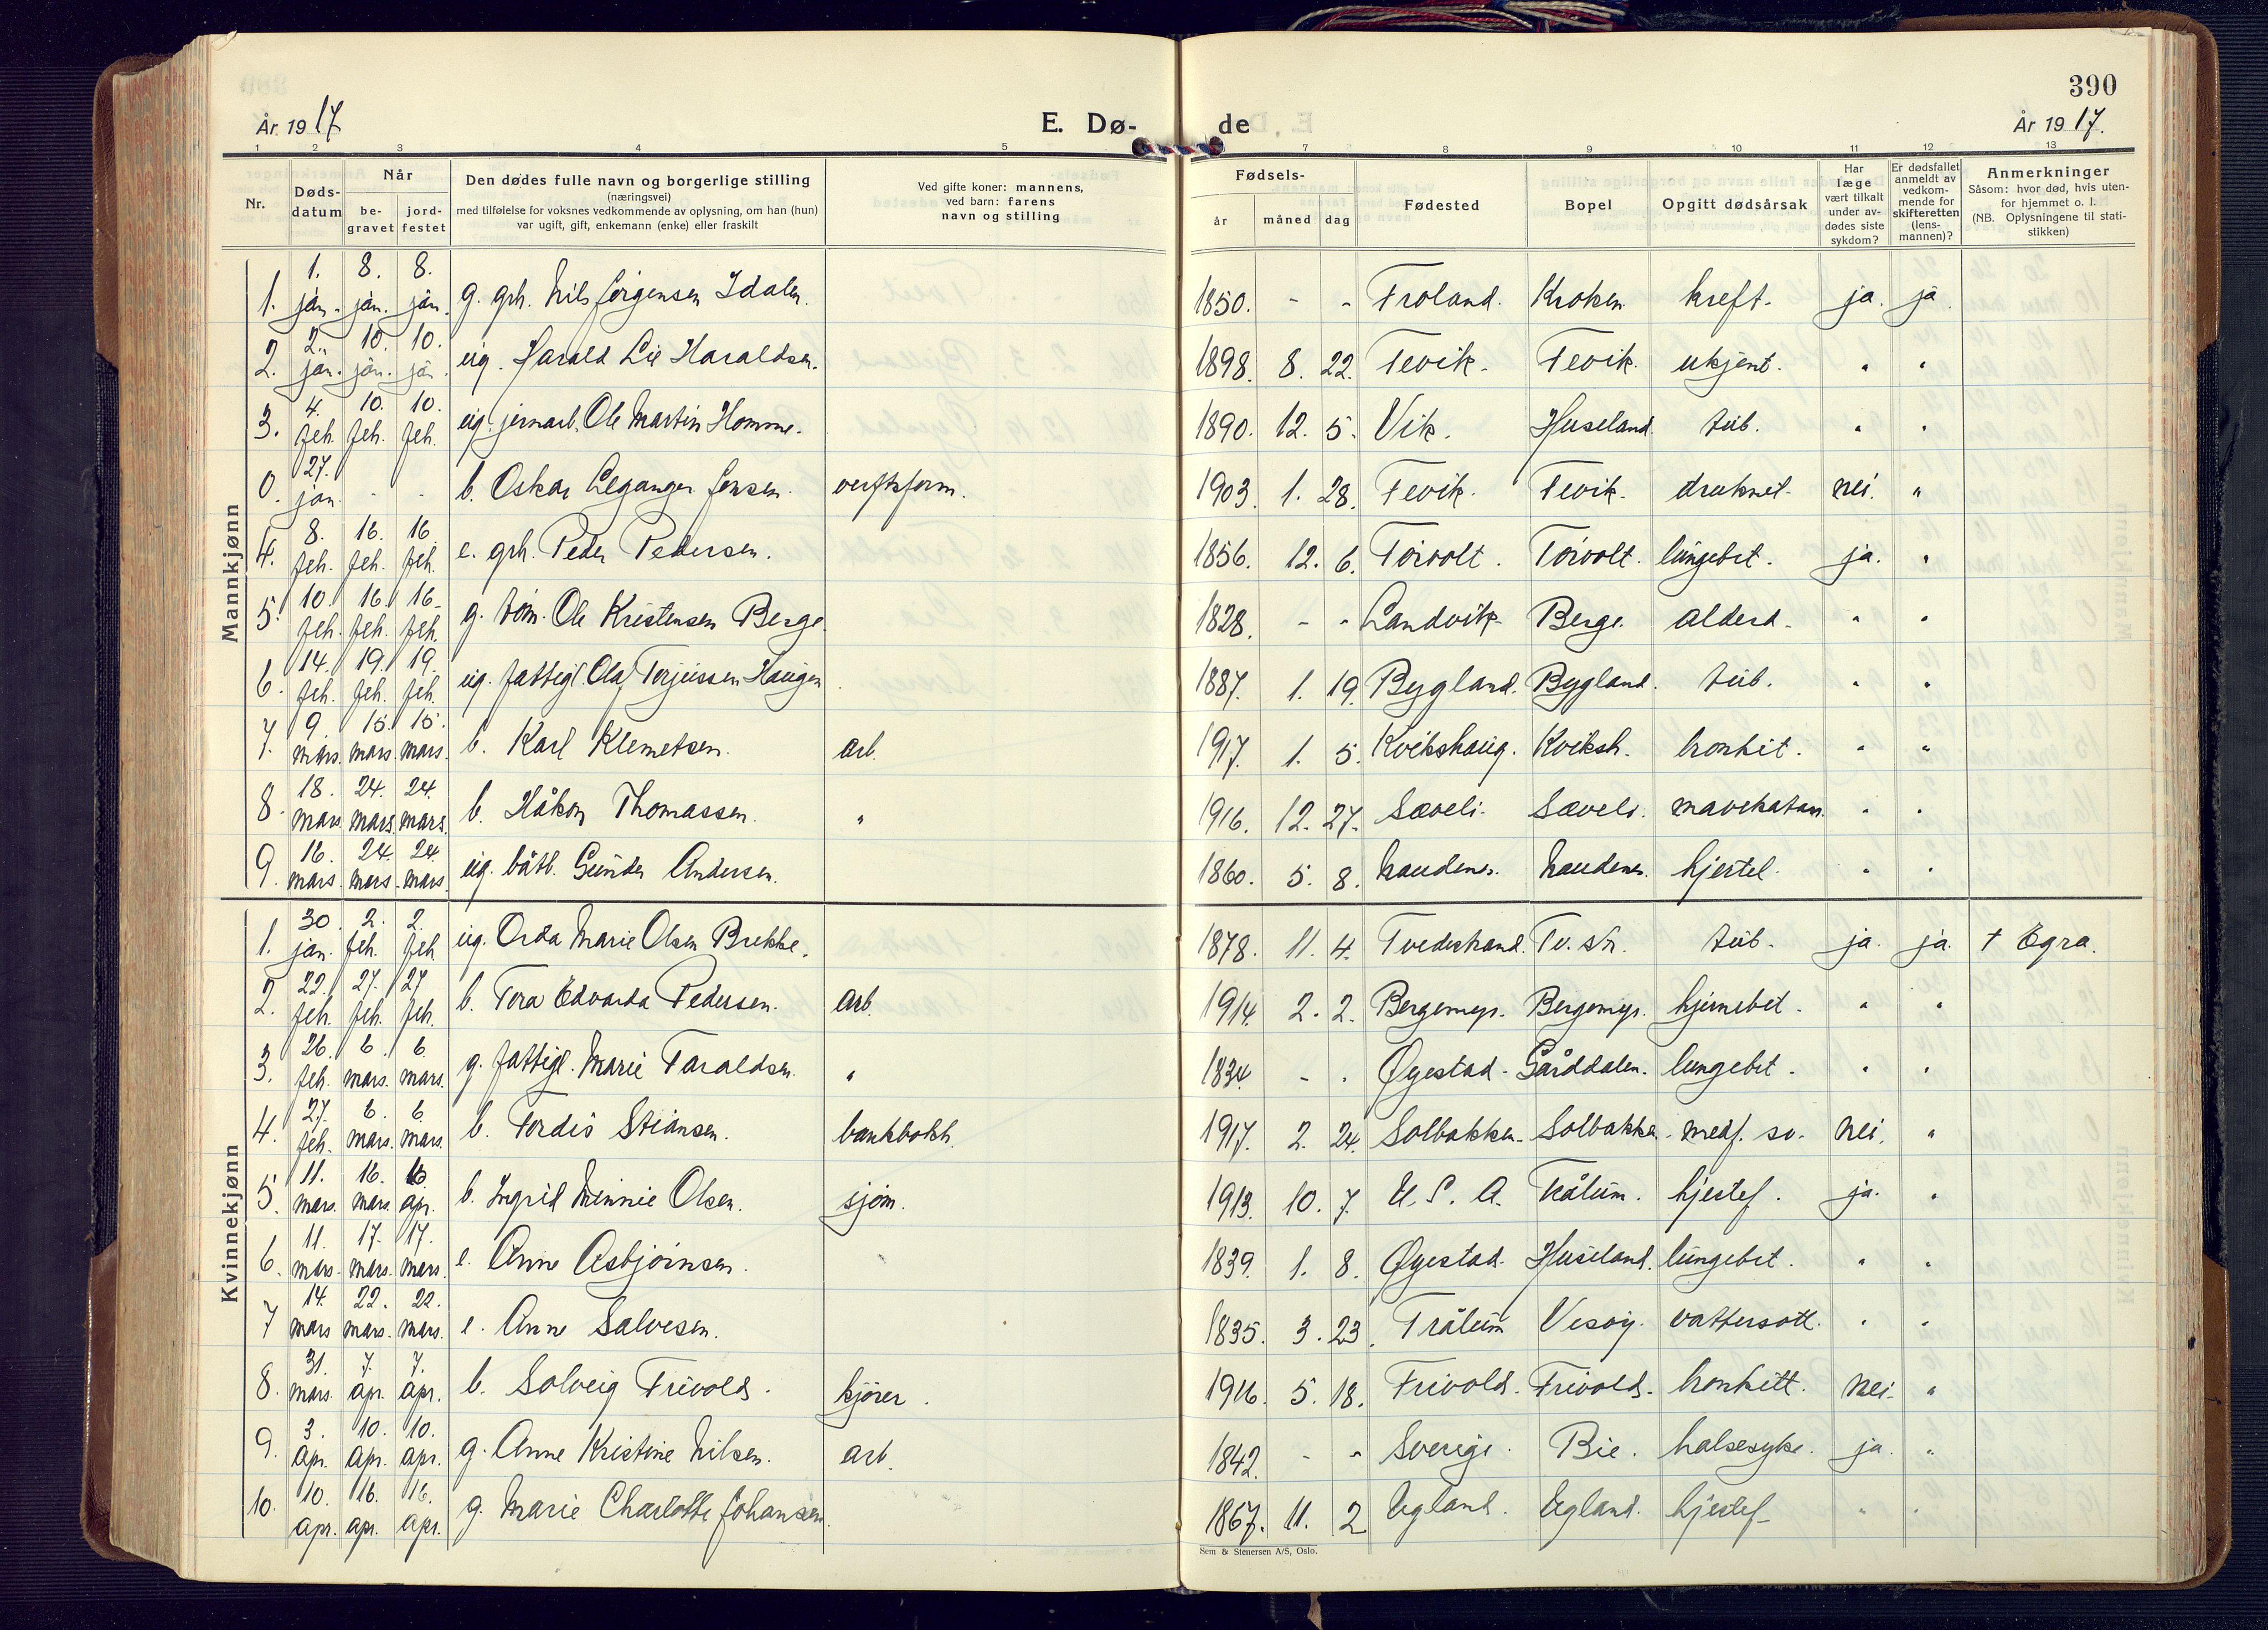 390
År 1917
E. Dø-
de
År 1917.
1 2 3 4 5 7 8 9 10 11 12 13
Nr.
Døds-
datum
Når
be-
gravet
jord-
festet
Den dødes fulle navn og borgerlige stilling
(næringsvei)
med tilføielse for voksnes vedkommende av oplysning, om han (hun)
var ugift, gift, enkemann (enke) eller fraskilt
Ved gifte koner: mannens,
ved barn: farens
navn og stilling
Fødsels-
år måned dag
Fødested
Bopel
Opgitt dødsårsak
Har
læge
vært tilkalt
under av-
dødes siste
sykdom?
Er dødsfallet
anmeldt av
vedkom-
mende for
skifteretten
(lens-
mannen)?
Anmerkninger
Såsom: hvor død, hvis uten-
for hjemmet o. l.
(NB. Oplysningene til stati-
stikken)
Mannkjønn
1. 1. jan. 8. jan. 8. jan. g. grh. Nils Jørgensen Idalen. 1850. - - Froland. Kroken kreft. ja. ja.
2. 2. jan. 10. jan. 10. jan. ug. Harald Lie Haraldsen. 1898. 8. 22. Fevik. Fevik. ukjent. " "
3. 4. feb. 10. feb. 10. feb. ug. jernarb. Ole Martin Homme. 1890. 12. 5. Vik. Huseland. tub. " "
0. 27. jan. - - b. Oskar Leganger Jensen. verftsform. 1903. 1. 28. Fevik. Fevik. druknet. nei. "
4. 8. feb. 16. feb. 16. feb. e. grh. Peder Pedersen. 1856. 12. 6. Tørvolt. Tørvolt. lungebet. ja. "
5. 10. feb. 16. feb. 16. feb. g. tøm. Ole Kristensen Berge. 1828. - - Landvik. Berge. alderd. " "
6. 14. feb. 19. feb. 19. feb. ug. fattigl. Olaf Terjussen Haugen. 1887. 1. 19. Bygland. Bygland. tub. " "
7. 9. mars. 15. mars. 15. mars. b. Karl Klemetsen. arb. 1917. 1. 5. Kvikshaug. Kviksh. bronkit. " "
8. 18. mars 24. mars. 24. mars. b. Håkon Thomassen. " 1916. 12. 27. Sæveli. Sæveli. mavekatarr. " "
9. 16. mars. 24. mars. 24. mars. ug. båtb. Gunder Andersen. 1860. 5. 8. Naudenes. Naudenes. hjertel. " "
Kvinnekjønn
1. 30. jan. 2. feb. 2. feb. ug. Orda Marie Olsen Brekke. 1878. 11. 4. Tvedestrand. Tv. str. tub. ja. ja. † Egra.
2. 22. feb. 27. feb. 27. feb. b. Tora Edvarda Pedersen. arb. 1914. 2. 2. Bergemyr. Bergemyr. hjernebet. " "
3. 26. feb. 6. mars. 6. mars. g. fattigl. Marie Taraldsen. " 1834. - - Øyestad. Gårddalen. lungebet. " "
4. 27. feb. 6. mars. 6. mars. b. Tordis Stiansen. bankbokh. 1917. 2. 24. Solbakken. Solbakken. medf. sv. nei. "
5. 11. mars. 16. mars. 16. apr. b. Ingrid Minnie Olsen. sjøm. 1913. 10. 7. U. S. A. Trålum. hjertef. ja. "
6. 11. mars. 17. mars. 17. mars. e. Anne Asbjørnsen. 1839. 1. 8. Øyestad. Huseland. lungebet. " "
7 14. mars 22. mars. 22. mars. e. Anne Salvesen. 1835. 3. 23. Trålum Vesøy. vattersott. " "
8. 31. mars. 7. apr. 7. apr. b. Solveig Frivolds. kjører. 1916. 5. 18. Frivolds. Frivolds. bronkitt. nei. "
9. 3. apr. 10. apr. 10. apr. g. Anne Kristine Nilsen. arb. 1842. - - Sverige. Bie. halsesyke. ja. "
10. 10. apr. 16. apr. 16. apr. g. Marie Charlotte Johansen. 1867. 11. 2 Egland. Egland. hjertef. " "
Sem & Stenersen A/S, Oslo.